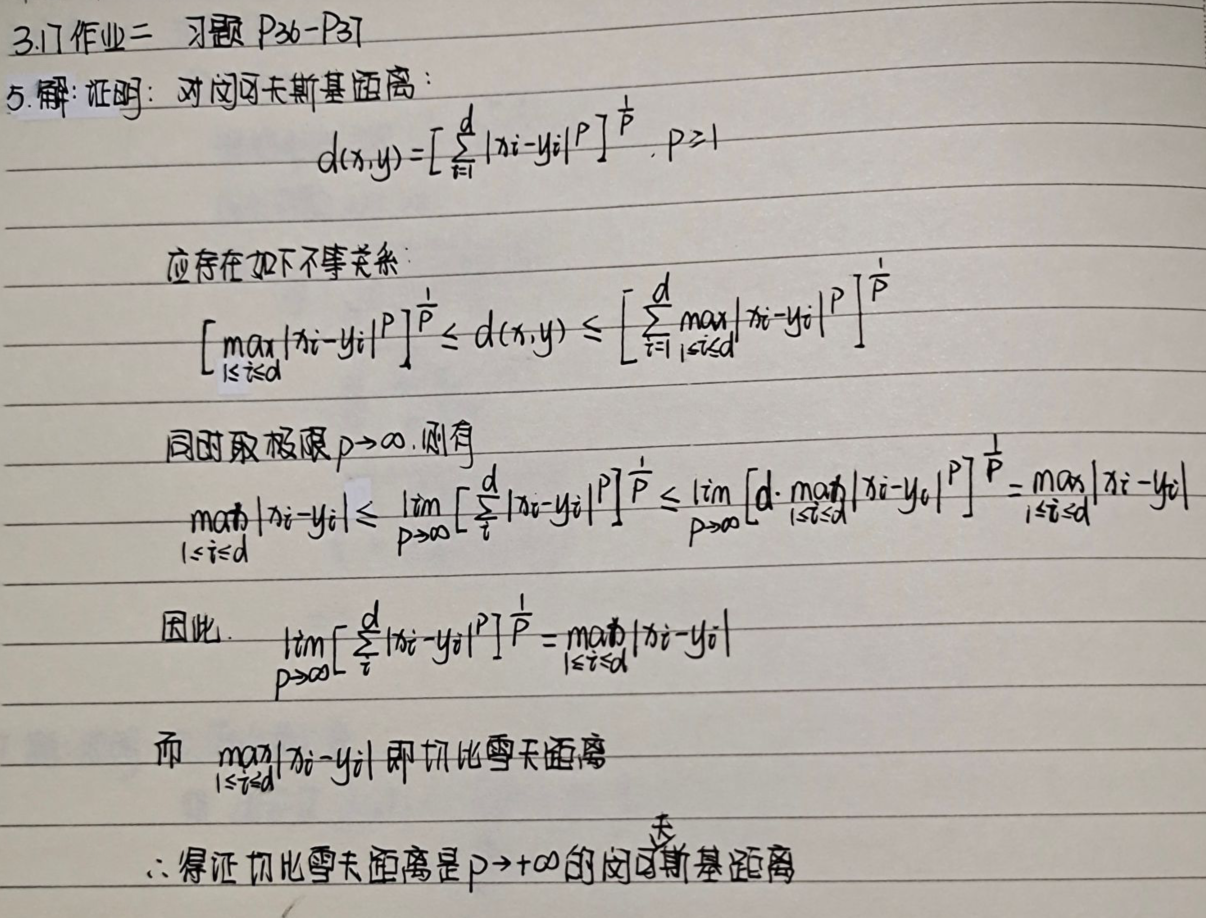 3.17作业二 习题 P36-P37
5.解:证明: 对闵可夫斯基距离:
d(x,y)=[∑_{i=1}^{d}|xi-yi|^p]^{1/p}. p≥1
应存在如下不等关系:
[max_{1≤i≤d}|xi-yi|^p]^{1/p} ≤ d(x,y) ≤ [∑_{i=1}^{d} max_{1≤i≤d}|xi-yi|^p]^{1/p}
同时取极限p→∞.则有
max_{1≤i≤d}|xi-yi| ≤ lim_{p→∞}[∑_{i}^{d}|xi-yi|^p]^{1/p} ≤ lim_{p→∞}[d·max_{1≤i≤d}|xi-yi|^p]^{1/p} = max_{1≤i≤d}|xi-yi|
因此. lim_{p→∞}[∑_{i}^{d}|xi-yi|^p]^{1/p} = max_{1≤i≤d}|xi-yi|
而 max_{1≤i≤d}|xi-yi| 即切比雪夫距离
∴得证切比雪夫距离是p→+∞的闵可夫斯基距离